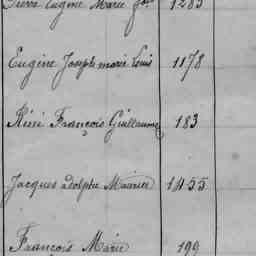 Pierre Eugène Marie fois 1285
Eugène Joseph marie Louis 1178
Réné François Guillaume 183
Jacques adolphe Maurice 1455
François Marie 199